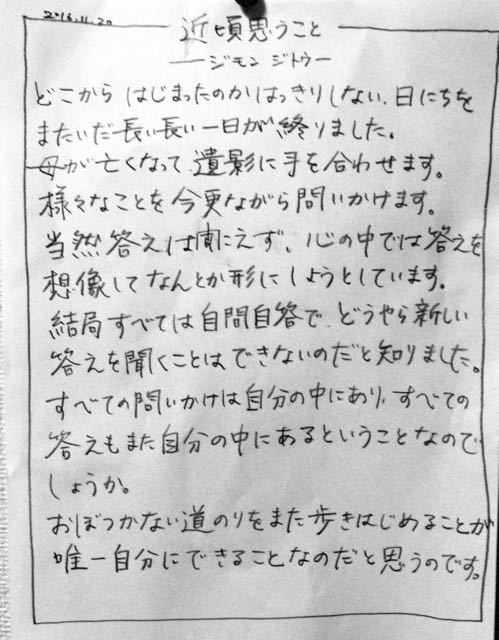 2016.11.20
近頃思うこと
ジモン ジトウー
どこから はじまったのかはっきりしない、日にちを
またいだ長い長い一日が終りました。
母が亡くなって、遺影に手を合わせます。
様々なことを今更ながら問いかけます。
当然答えは聞こえず、心の中では答えを
想像してなんとか形にしようとしています。
結局すべては自問自答で、どうやら新しい
答えを聞くことはできないのだと知りました。
すべての問いかけは自分の中にあり、すべての
答えもまた自分の中にあるということなので
しょうか。
おぼつかない道のりをまた歩きはじめることが
唯一自分にできることなのだと思うのです。